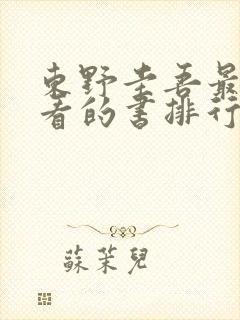 東野圭吾最
看的书排行
蘇茉兒